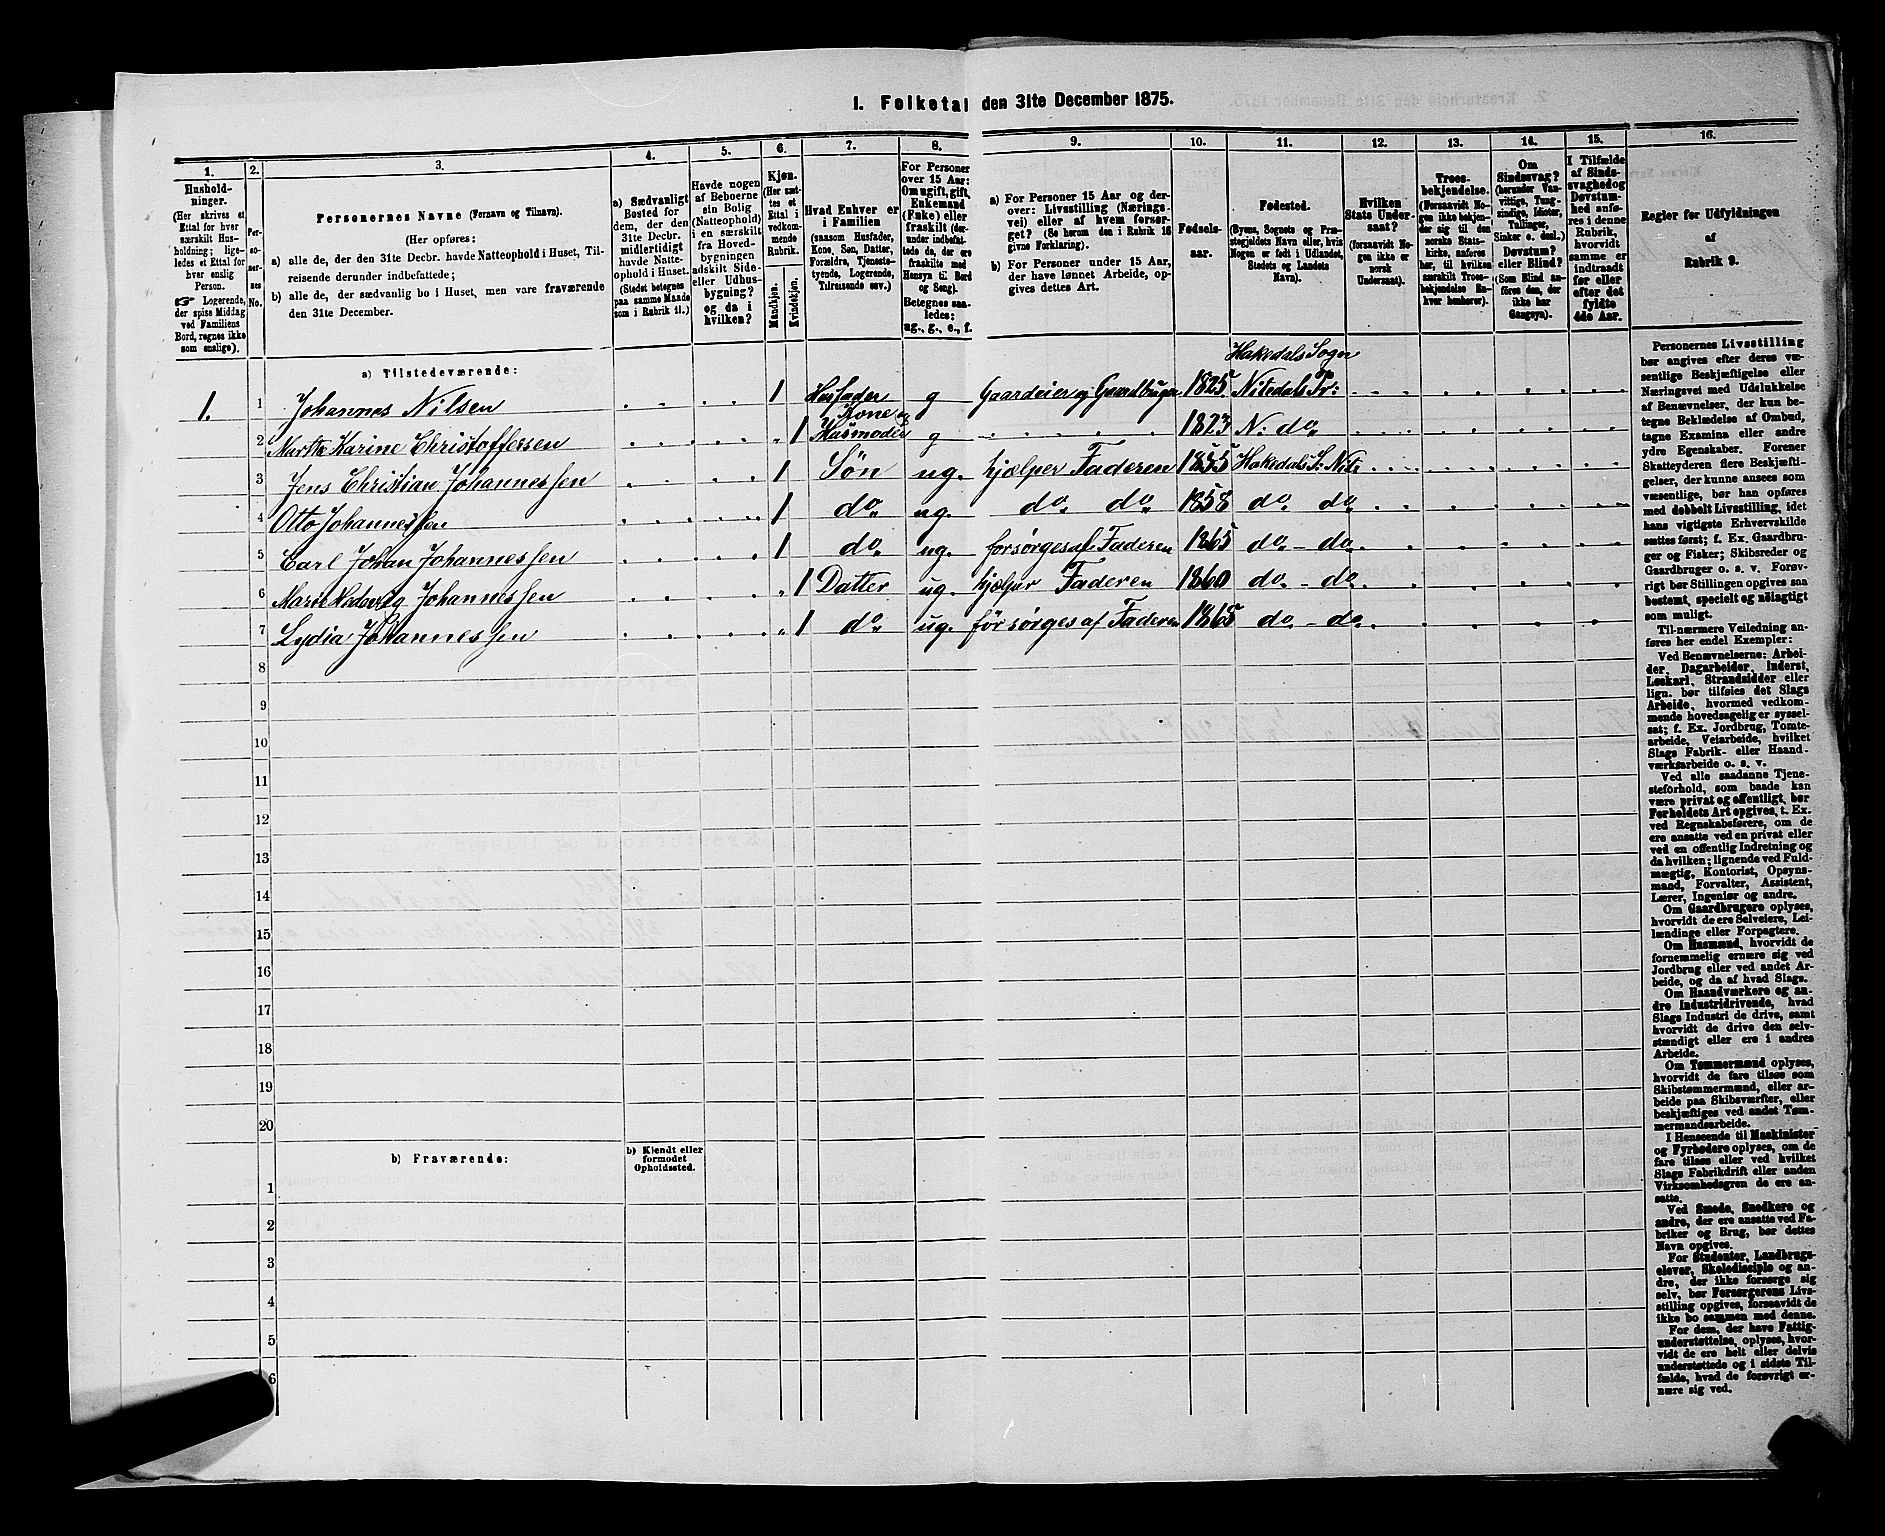 I. Folketal den 31te December 1875.
1.
Hushold-
ninger.
(Her skrives et
Ettal for hver
særskilt Hus-
holdning; lige-
ledes et Ettal for
hver enslig
Person.
☞ Logerende,
der spise Middag
ved Familiens
Bord, regnes ikke
som enslige).
2.
Per-
so-
ner-
nes
No.
3.
Personernes Navne (Fornavn og Tilnavn).
(Her opføres:
a) alle de, der den 31te Decbr. havde Natteophold i Huset, Til-
reisende derunder indbefattede;
b) alle de, der sædvanlig bo i Huset, men vare fraværende
den 31te December.
4.
a) Sædvanligt
Bosted for
dem, der den
31te Decbr.
midlertidigt
havde Natte-
ophold i Huset.
(Stedet betegnes
paa samme Maade
som i Rubrik 11.)
5.
Havde nogen
af Beboerne
sin Bolig
(Natteophold)
i en særskilt
fra Hoved-
bygningen
adskilt Side-
eller Udhus-
bygning?
og da i
hvilken?
6.
Kjøn.
(Her sæt-
tes et
Ettal i
vedkom-
mende
Rubrik.
Mandkjøn.
Kvindekjøn.
7.
Hvad Enhver er
i Familien
(saasom Husfader,
Kone, Søn, Datter,
Forældre, Tjeneste-
tyende, Logerende,
Tilreisende osv.)
8.
For Personer
over 15 Aar:
Om ugift, gift,
Enkemand
(Enke) eller
fraskilt (der-
under indbefat-
tede de, der ere
fraskilte med
Hensyn til Bord
og Seng).
Betegnes saa-
ledes:
ug., g., e., f.
9.
a) For Personer 15 Aar og der-
over: Livsstilling (Nærings-
vei) eller af hvem forsør-
get? (Se herom den i Rubrik 16
givne Forklaring).
b) For Personer under 15 Aar,
der have lønnet Arbeide, op-
gives dettes Art.
10.
Fødsels-
aar.
11.
Fødested.
(Byens, Sognets og Præ-
stegjeldets Navn eller, hvis
Nogen er født i Udlandet,
Stedets og Landets
Navn).
12.
Hvilken
Stats Under-
saat?
(forsaavidt No-
gen ikke er
norsk
Undersaat).
13.
Troes-
bekjendelse.
(Forsaavidt No-
gen ikke bekjen-
der sig til den
norske Stats-
kirke, anføres
her, til hvilken
særskilt Troes-
bekjendelse En-
hver henhører).
14.
Om
Sindssvag?
(herunder Van-
vittige, Tung-
sindige, Idioter,
Tullinger,
Sinker o. desl.)
Døvstum?
eller Blind?
(Som Blind an-
føres den, der
ikke har
Gangsyn).
15.
I Tilfælde
af Sinds-
svaghed og
Døvstum-
hed anfø-
res i denne
Rubrik,
hvorvidt
samme er
indtraadt
før eller
efter det
fyldte
4de Aar.
16.
Regler for Udfyldningen
af
Rubrik 9.
a) Tilstedeværende:
Hakedals Sogn
1. 1 Johannes Nilsen 1 Husfader g Gaardeier og Gaardbruger 1825 Nitedals Pr:
Kone og
2 Marthe Karine Christoffersen 1 Husmoder g 1823 N: do
3 Jens Christian Johannessen 1 Søn ug. hjælper Faderen 1855 Hakedals S: Nit:
4 Otto Johannessen 1 do ug. do do 1858 do do
5 Carl Johan Johannessen 1 do ug. forsørges af Faderen 1865 do - do
6 Johannessen 1 Datter ug. hjelper Faderen 1860 do - do
7 Lydia Johannessen 1 do ug. forsørges af Faderen 1865 do - do
8
9
10
11
12
13
14
15
16
17
18
19
20
b) Fraværende:
b) Kjendt eller
formodet
Opholdssted.
1
2
3
4
5
6
Personernes Livsstilling
bør angives efter deres væ-
sentlige Beskjæftigelse eller
Næringsvei med Udelukkelse
af Benævnelser, der kun be-
tegne Beklædelse af Ombud,
tagne Examina eller andre
ydre Egenskaber. Forener
Skatteyderen flere Beskjæfti-
gelser, der kunne ansees som
væsentlige, bør han opføres
med dobbelt Livsstilling, idet
hans vigtigste Erhvervskilde
sættes først; f. Ex. Gaardbru-
ger og Fisker; Skibsreder og
Gaardbruger o. s. v. Forøv-
rigt bør Stillingen opgives saa
bestemt, specielt og nøiagtigt
som muligt.
Til nærmere Veiledning an-
føres her endel Exempler:
Ved Benævnelserne: Arbei-
der, Dagarbeider, Inderst,
Løskarl, Strandsidder eller
lign. bør tilføies det Slags
Arbeide, hvormed vedkom-
mende hovedsagelig er syssel-
sat; f. Ex. Jordbrug, Tomte-
arbeide, Veiarbeide, hvilket
Slags Fabrik- eller Haand-
værksarbeide o. s. v.
Ved alle saadanne Tjene-
steforhold, som baade kan
være privat og offentligt, bør
Forholdets Art opgives, t. Ex.
ved Regnskabsførere, om de
ere ansatte ved en privat eller
ved en offentlig Indretning og
da hvilken; lignende ved Fuld-
mægtig, Kontorist, Opsyns-
mand, Forvalter, Assistent,
Lærer, Ingeniør og andre.
Om Gaardbrugere oplyses,
hvorvidt de ere Selveiere, Lei-
lændinge eller Forpagtere.
Om Husmænd, hvorvidt de
fornemmelig ernære sig ved
Jordbrug eller ved andet Ar-
beide, og da af hvad Slags.
Om Haandværkere og an-
dre Industridrivende, hvad
Slags Industri de drive, samt
hvorvidt de drive den selv-
stændigt eller ere i andres
Arbeide.
Om Tømmermænd oplyses,
hvorvidt de fare tilsøs som
Skibstømmermænd, eller ar-
beide paa Skibsværfter, eller
beskjæftiges ved andet Tøm-
mermandsarbeide.
I Henseende til Maskinister
og Fyrbødere oplyses, om de
fare tilsøs eller ved hvilket
Slags Fabrikdrift eller anden
Virksomhedsgren de ere an-
satte.
Ved Smede, Snedkere og
andre, der ere ansatte ved Fa-
briker og Brug, bør dettes
Navn opgives.
For Studenter, Landbrugs-
elever, Skoledisciple og an-
dre, der ikke forsørge sig
selv, bør Forsørgerens Livs-
stilling opgives, forsaavidt de
ikke bo sammen med denne.
For dem, der have Fattig-
understøttelse, oplyses, hvor-
vidt de ere helt eller delvis
understøttede og i sidste Til-
fælde, hvad de forøvrigt er-
nære sig ved.